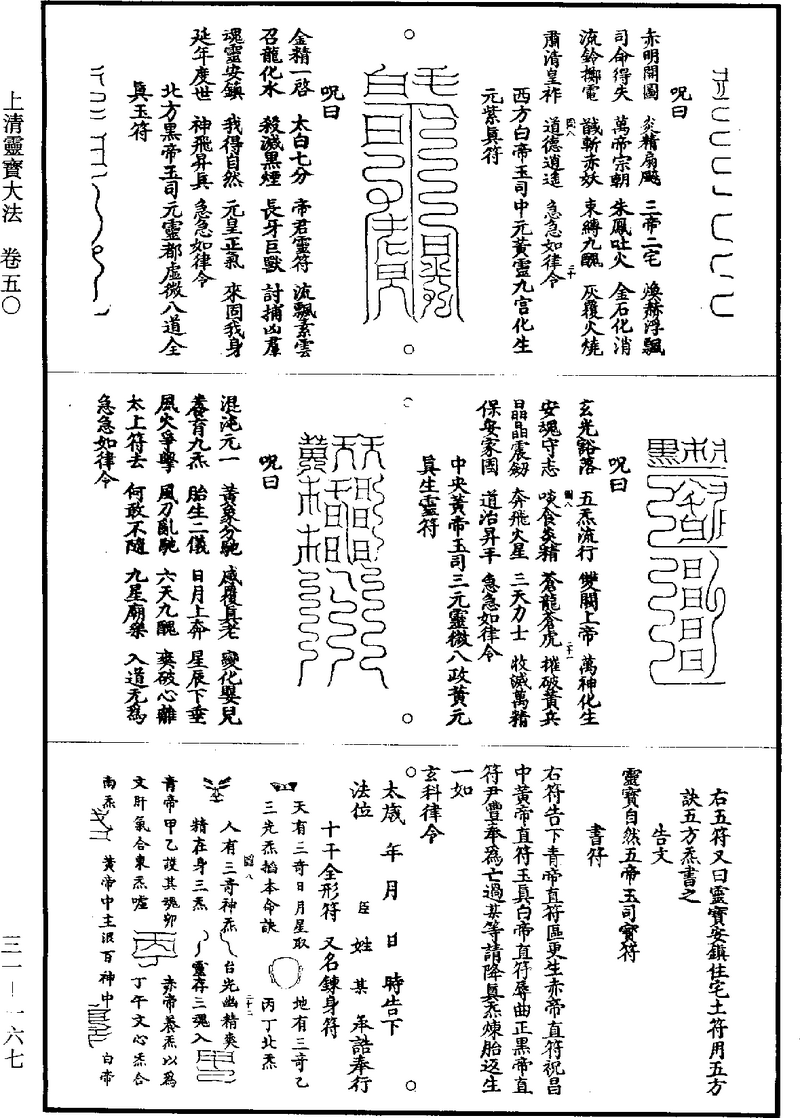 上清靈寶大法　卷五〇
三一—一六七
呪曰
赤明開圖　炎精扇颷　三帝二宅　煥赫浮飄
司命得失　萬帝宗朝　朱鳳吐火　金石化消
流鈴擲電　馘斬赤妖　束縛九醜　灰覆火燒
肅清皇祚　道德逍遙　急急如律令
西方白帝玉司中元黃靈九宮化生
元紫眞符
呪曰
金精一啓　太白七分　帝君靈符　流飄素雲
召龍化水　殺滅黑煙　長牙巨獸　討捕凶羣
魂靈安鎮　我得自然　元皇正氣　來固我身
延年度世　神飛昇具　急急如律令
北方黑帝玉司元靈都虛微八道全
眞玉符
呪曰
玄光豁落　五炁流行　雙闕上帝　萬神化生
安魂守志　啖食炎精　蒼龍蒼虎　摧破黃兵
晶晶震劔　奔飛火星　三天力士　收滅萬精
保安家國　道治昇平　急急如律令
中央黃帝玉司三元靈微八政黃元
眞生靈符
呪曰
混沌元一　黃象分馳　感覆眞老　變化嬰兒
養育九炁　胎生二儀　日月上奔　星辰下垂
風火爭擊　風刀亂馳　六天九醜　爽破心離
太上符去　何敢不隨　九星廟祭　入道无爲
急急如律令
右五符又曰靈寶安鎮住宅土符用五方
訣五方炁書之
告文
靈寶自然五帝玉司寶符
書符
右符告下青帝直符區更生赤帝直符祝昌
中黃帝直符玉眞白帝直符辱曲正黑帝直
符尹豐奉爲亡過某等請降眞炁煉胎返生
一如
玄科律令
太歲　年　月　日　時告下
法位　臣　姓　某　承誥奉行
十干全形符　又名鍊身符
天有三奇日月星取　地有三奇乙
三光炁掐本命訣　丙丁北炁
人有三奇神炁　台光幽精爽
精在身三炁　靈存三魂入
青帝甲乙護其魂卯　赤帝養炁以爲
文肝氣合東炁噓　丁午文心炁合
南炁　黃帝中主混百神中　白帝